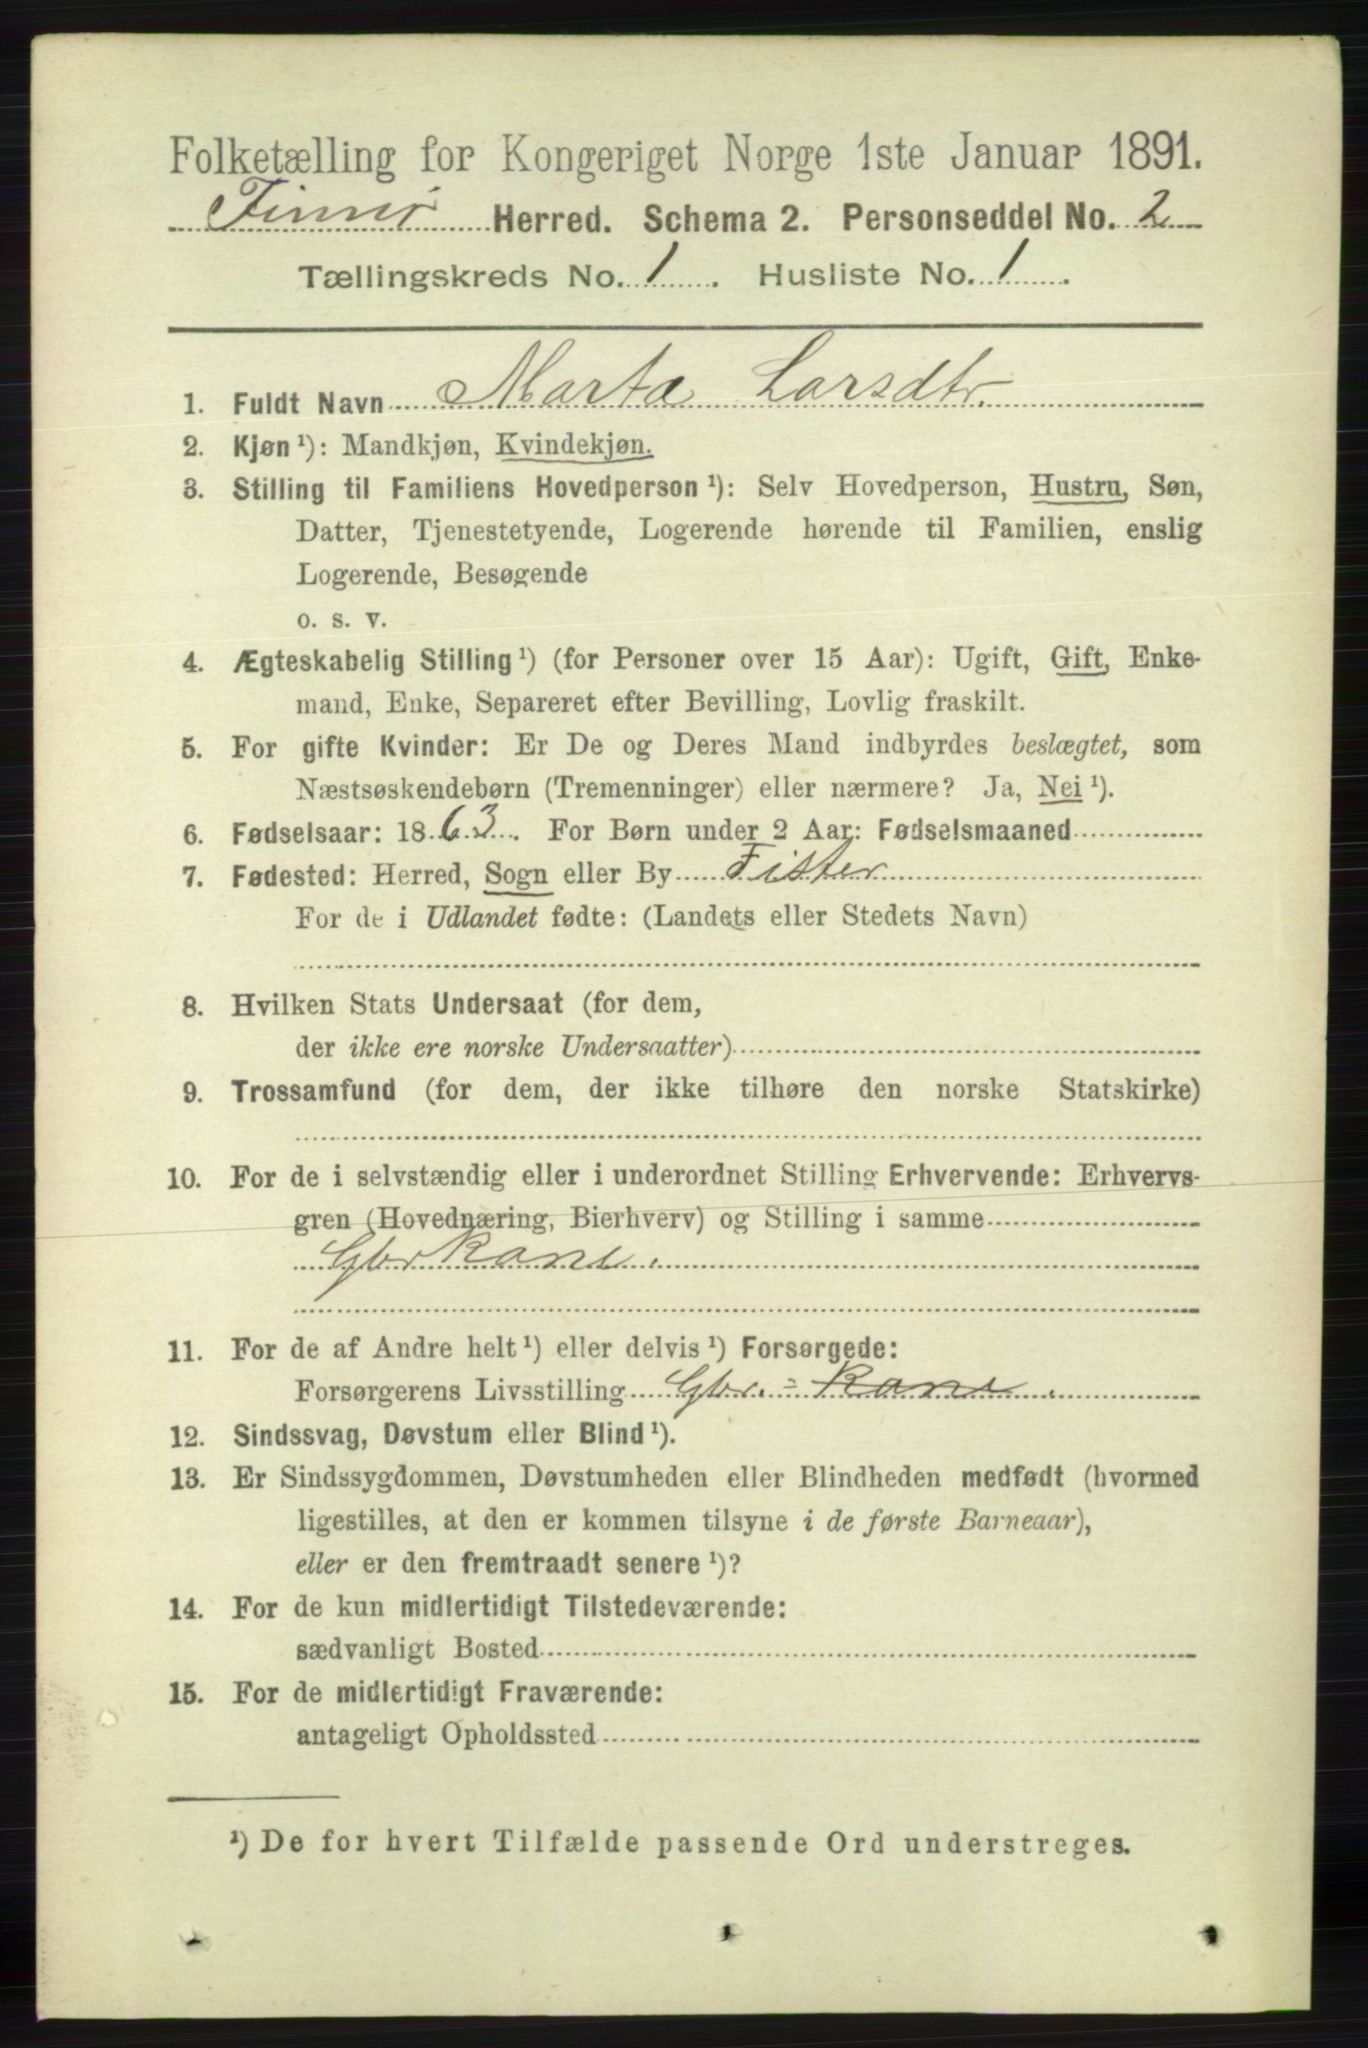 Folketælling for Kongeriget Norge 1ste Januar 1891.
Finnø Herred. Schema 2. Personseddel No. 2
Tællingskreds No. 1. Husliste No. 1.
1. Fuldt Navn Marta Larsdtr.
2. Kjøn¹): Mandkjøn, Kvindekjøn.
3. Stilling til Familiens Hovedperson¹): Selv Hovedperson, Hustru, Søn,
Datter, Tjenestetyende, Logerende hørende til Familien, enslig
Logerende, Besøgende
o. s. v.
4. Ægteskabelig Stilling¹) (for Personer over 15 Aar): Ugift, Gift, Enke-
mand, Enke, Separeret efter Bevilling, Lovlig fraskilt.
5. For gifte Kvinder: Er De og Deres Mand indbyrdes beslægtet, som
Næstsøskendebørn (Tremenninger) eller nærmere? Ja, Nei¹).
6. Fødselsaar: 1863. For Børn under 2 Aar: Fødselsmaaned
7. Fødested: Herred, Sogn eller By Fister
For de i Udlandet fødte: (Landets eller Stedets Navn)
8. Hvilken Stats Undersaat (for dem,
der ikke ere norske Undersaatter)
9. Trossamfund (for dem, der ikke tilhøre den norske Statskirke)
10. For de i selvstændig eller i underordnet Stilling Erhvervende: Erhvervs-
gren (Hovednæring, Bierhverv) og Stilling i samme
Gbr Kone.
11. For de af Andre helt¹) eller delvis¹) Forsørgede:
Forsørgerens Livsstilling Gbr. = Kone.
12. Sindssvag, Døvstum eller Blind¹).
13. Er Sindssygdommen, Døvstumheden eller Blindheden medfødt (hvormed
ligestilles, at den er kommen tilsyne i de første Barneaar),
eller er den fremtraadt senere¹)?
14. For de kun midlertidigt Tilstedeværende:
sædvanligt Bosted
15. For de midlertidigt Fraværende:
antageligt Opholdssted
¹) De for hvert Tilfælde passende Ord understreges.